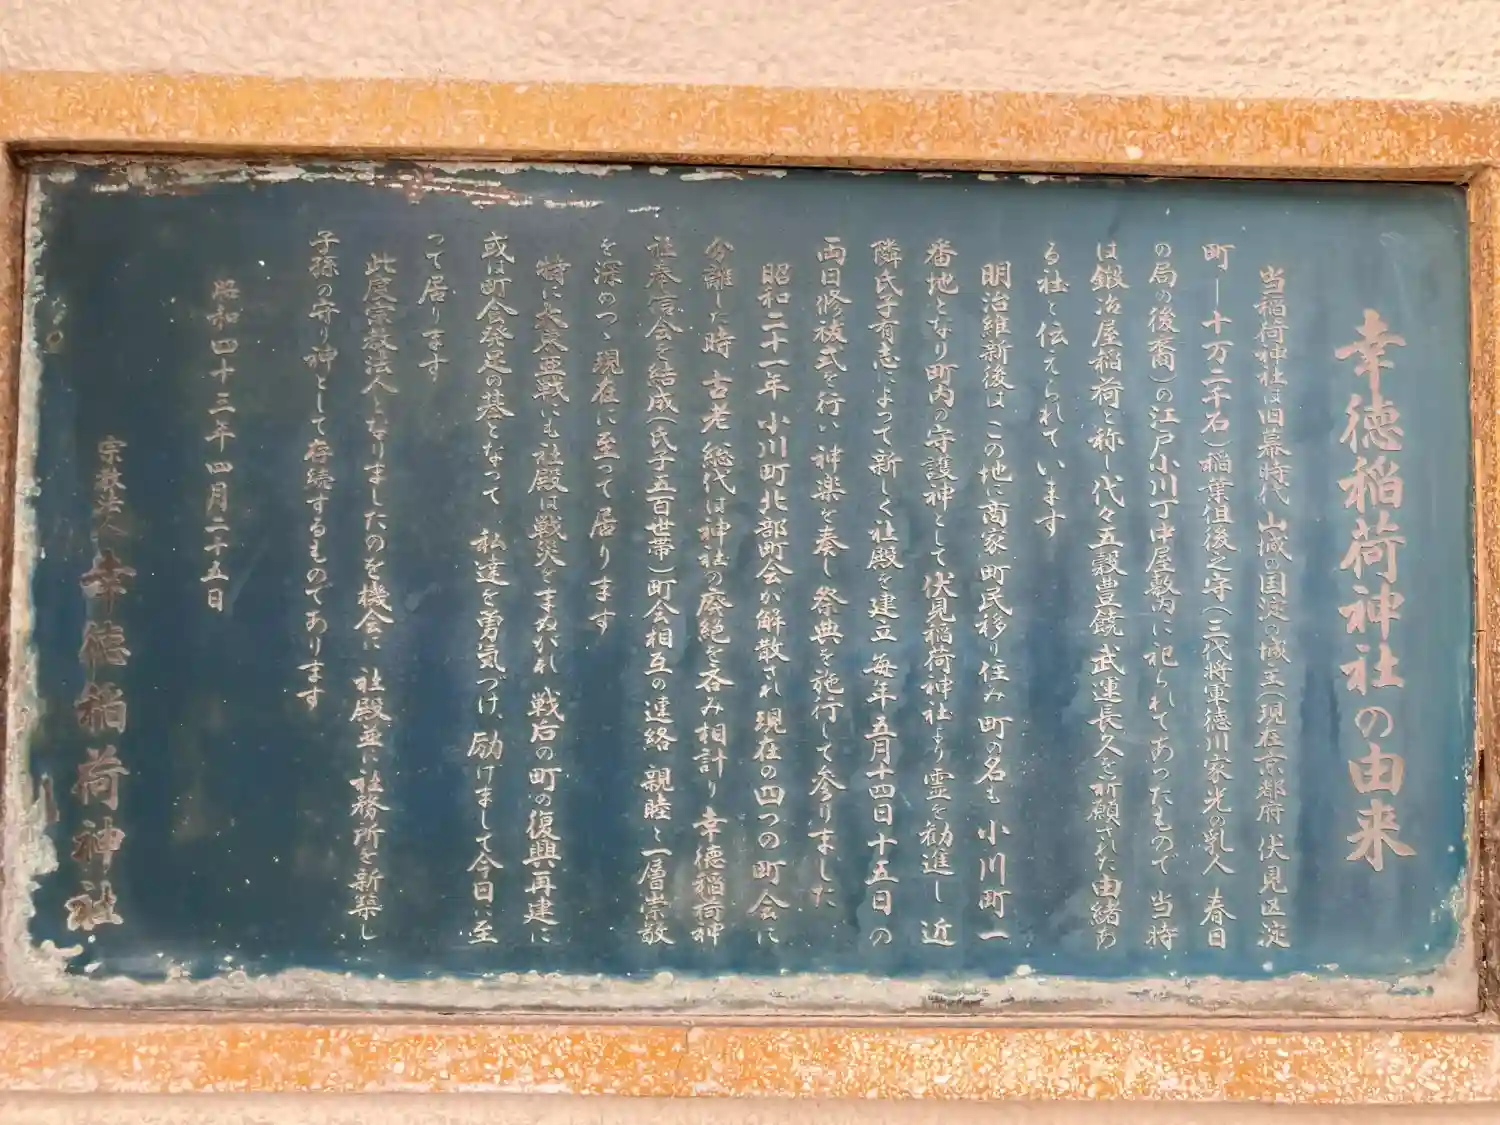 幸徳稲荷神社の由来
当稲荷神社は旧幕時代 山城の国淀の城主(現在京都府 伏見区淀
町 十万二千石)稲葉但後之守(三代将軍徳川家光の乳人 春日
の局の後裔)の江戸小川丁中屋敷内に祀られてあったもので 当時
は鍛冶屋稲荷と称し代々五穀豊饒 武運長久を祈願された由緒あ
る社と伝えられています
明治維新後は この地に商家町民移り住み 町の名も 小川町一
番地となり町内の守護神として 伏見稲荷神社より霊を勧進し 近
隣氏子有志によって新しく社殿を建立 毎年五月十四日十五日の
両日修祓式を行い 神楽を奏し祭典を施行して参りました
昭和二十一年 小川町北部町会が解散され 現在の四つの町会に
分離した時 古老総代は神社の廃絶を呑み相計り 幸徳稲荷神
社奉賛会を結成(氏子五百世帯)町会相互の連絡 親睦と一層崇敬
を深めつゝ現在に至って居ります
特に大東亜戦にも社殿は戦災をまぬがれ 戦后の町の復興再建に
或は町会発足の基となって 私達を勇気づけ、励げまして今日に至
って居ります
此度宗教法人となりましたのを機会に 社殿並に社務所を新築し
子孫の守り神として存続するものであります
昭和四十三年四月二十五日
宗教法人 幸徳稲荷神社